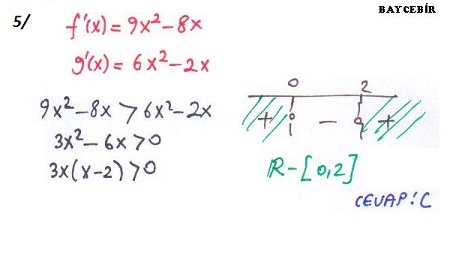 BAYCEBİR
5/
f'(x) = 9x² - 8x
g'(x) = 6x² - 2x
9x² - 8x > 6x² - 2x
3x² - 6x > 0
3x(x-2) > 0
0 2
+ - +
R - [0,2]
CEVAP: C